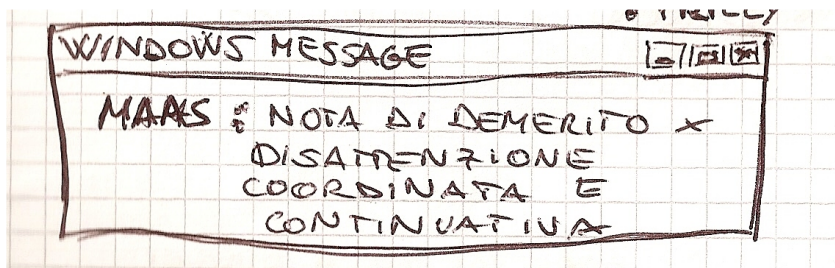 WINDOWS MESSAGE
MAAS : NOTA DI DEMERITO x
DISATTENZIONE
COORDINATA E
CONTINUATIVA